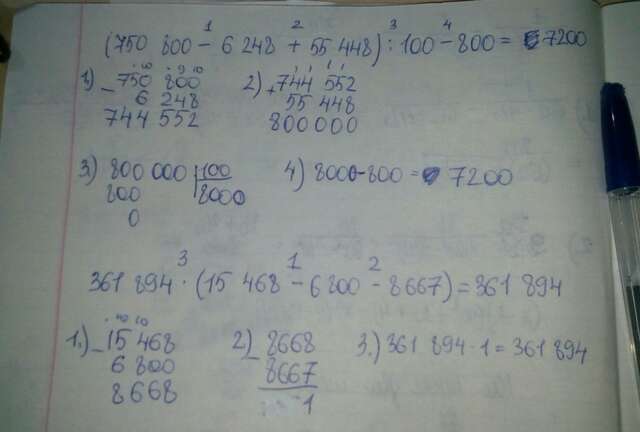 1 2 3 4
(750 800 - 6 248 + 55 448) : 100 - 800 = 7200
1) - 750 800 2) + 744 552
6 248 55 448
744 552 800 000
3) 800 000 | 100 4) 8000 - 800 = 7200
800 8000
0
3 1 2
361 894 · (15 468 - 6 800 - 8667) = 361 894
1.) - 15 468 2) - 8668 3.) 361 894 · 1 = 361 894
6 800 8667
8668 1